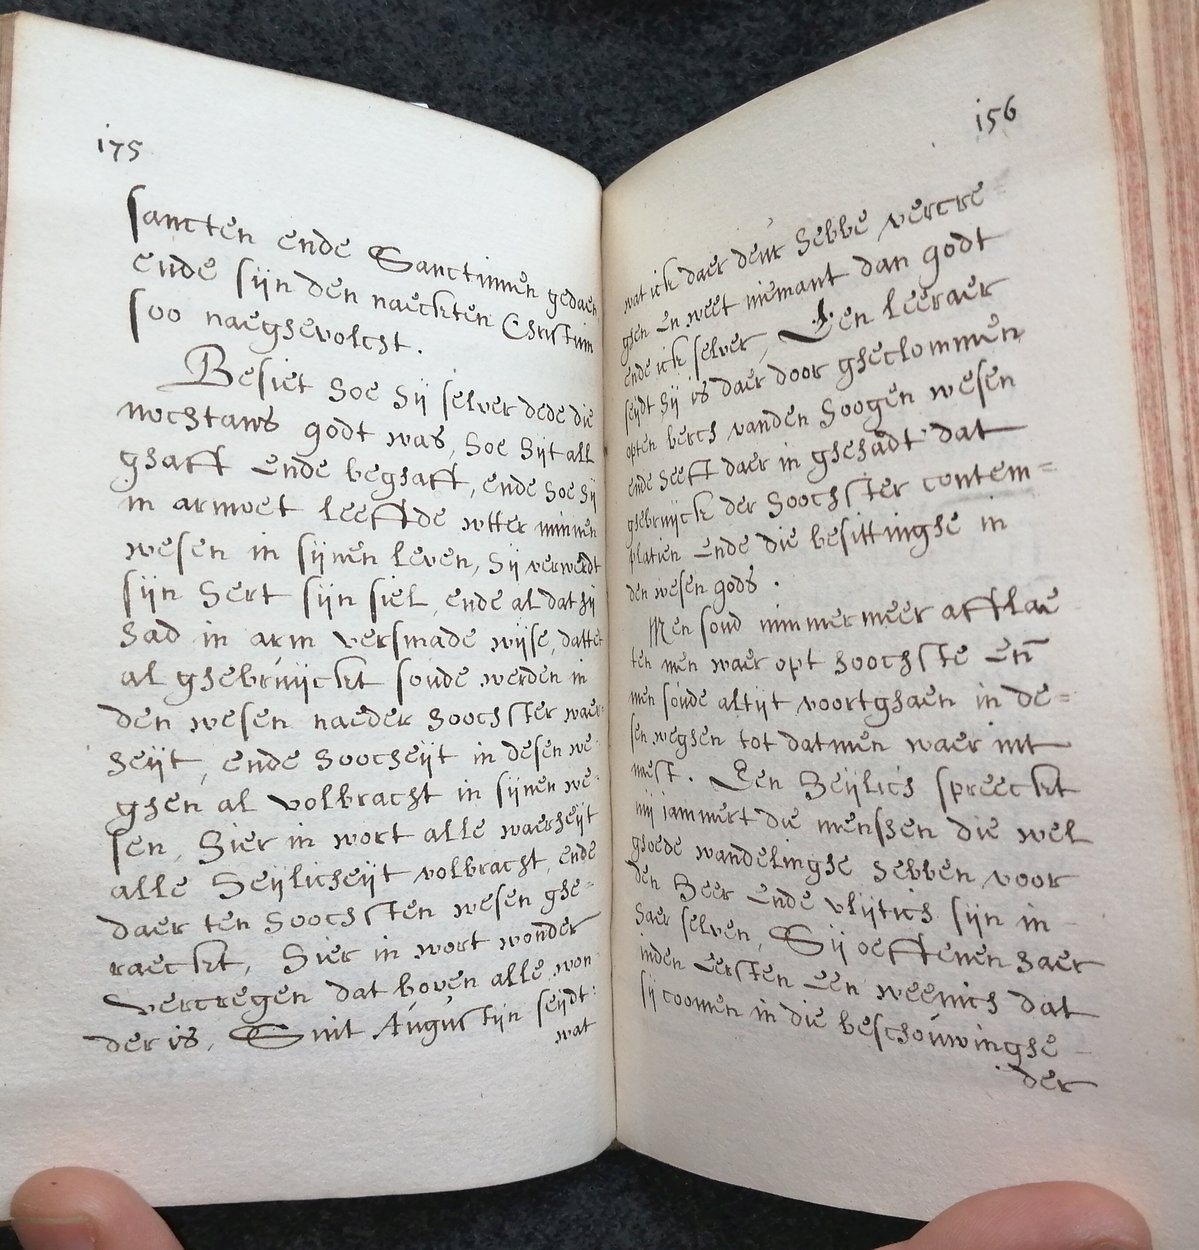 175
sancten ende Sanctinnen gedaen
ende sijn den naeckten Christum
soo naeghevolcht.
Besiet hoe hij selver dede die
nochtans godt was, hoe hijt all
ghaff ende beghaff, ende hoe hij
in armoet leeffde wtter minnen
wesen in sijnen leven, hij verwerdt
sijn hert sijn siel, ende al dat hij
had in arm versmade wijse, dattet
al ghebruijckt soude werden in
den wesen naeder hoochster waer-
heijt, ende hoocheijt in desen we-
ghen al volbracht in sijnen we-
sen, hier in wort alle waerheijt
alle heijlicheijt volbracht, ende
daer ten hoochsten wesen ghe-
raeckt, hier in wort wonder
vercregen dat boven alle won
der is, Sint Augustijn seijdt:
wat
156
wat ick daer deur hebbe vercre
ghen en weet niemant dan godt
ende ick selver, Een leeraer
seijdt hij is daer door gheclommen
opten berch vanden hoogen wesen
ende heeft daer in ghehadt dat
ghebruijck der hoochster contem=
platien ende die besittinghe in
den wesen gods.
Men soud nimmermeer afflae
ten men waer opt hoochste en̄
men soude altijt voortghaen in de=
sen weghen tot datmen waer int
naest. Een heijlich spreeckt
mij iammert die menshen die wel
ghoede wandelinghe hebben voor
den heer ende vlijtich sijn in
haer selven, Sij oeffenen haer
inden eersten een weenich dat
sij coomen in die beschouwinghe
der